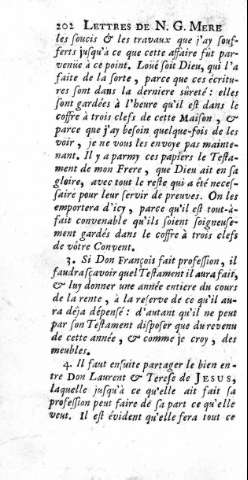 202 LETTRES DE N. G. MERE
les soucis & les travaux que j'ay souf-
ferts jusqu'à ce que cette affaire fût par-
venuë à ce point. Loüé soit Dieu, qui l'a
faite de la sorte, parce que ces écritu-
res sont dans la derniere sûreté: elles
sont gardées à l'heure qu'il est dans le
coffre à trois clefs de cette Maison, &
parce que j'ay besoin quelque-fois de les
voir, je ne vous les envoye pas mainte-
nant. Il y a parmy ces papiers le Testa-
ment de mon Frere, que Dieu ait en sa
gloire, avec tout le reste qui a été neces-
saire pour leur servir de preuves. On les
emportera d'icy, parce qu'il est tout-à-
fait convenable qu'ils soient soigneuse-
ment gardés dans le coffre à trois clefs
de vôtre Convent.
3. Si Don François fait profession, il
faudra sçavoir quel Testament il aura fait,
& luy donner une année entiere du cours
de la rente, à la reserve de ce qu'il au-
ra déja dépensé: d'autant qu'il ne peut
par son Testament disposer que du revenu
de cette année, & comme je croy, des
meubles.
4. Il faut ensuite partager le bien en-
tre Don Laurent & Terese de JESUS,
laquelle jusqu'à ce qu'elle ait fait sa
profession peut faire de sa part ce qu'elle
veut. Il est évident qu'elle fera tout ce